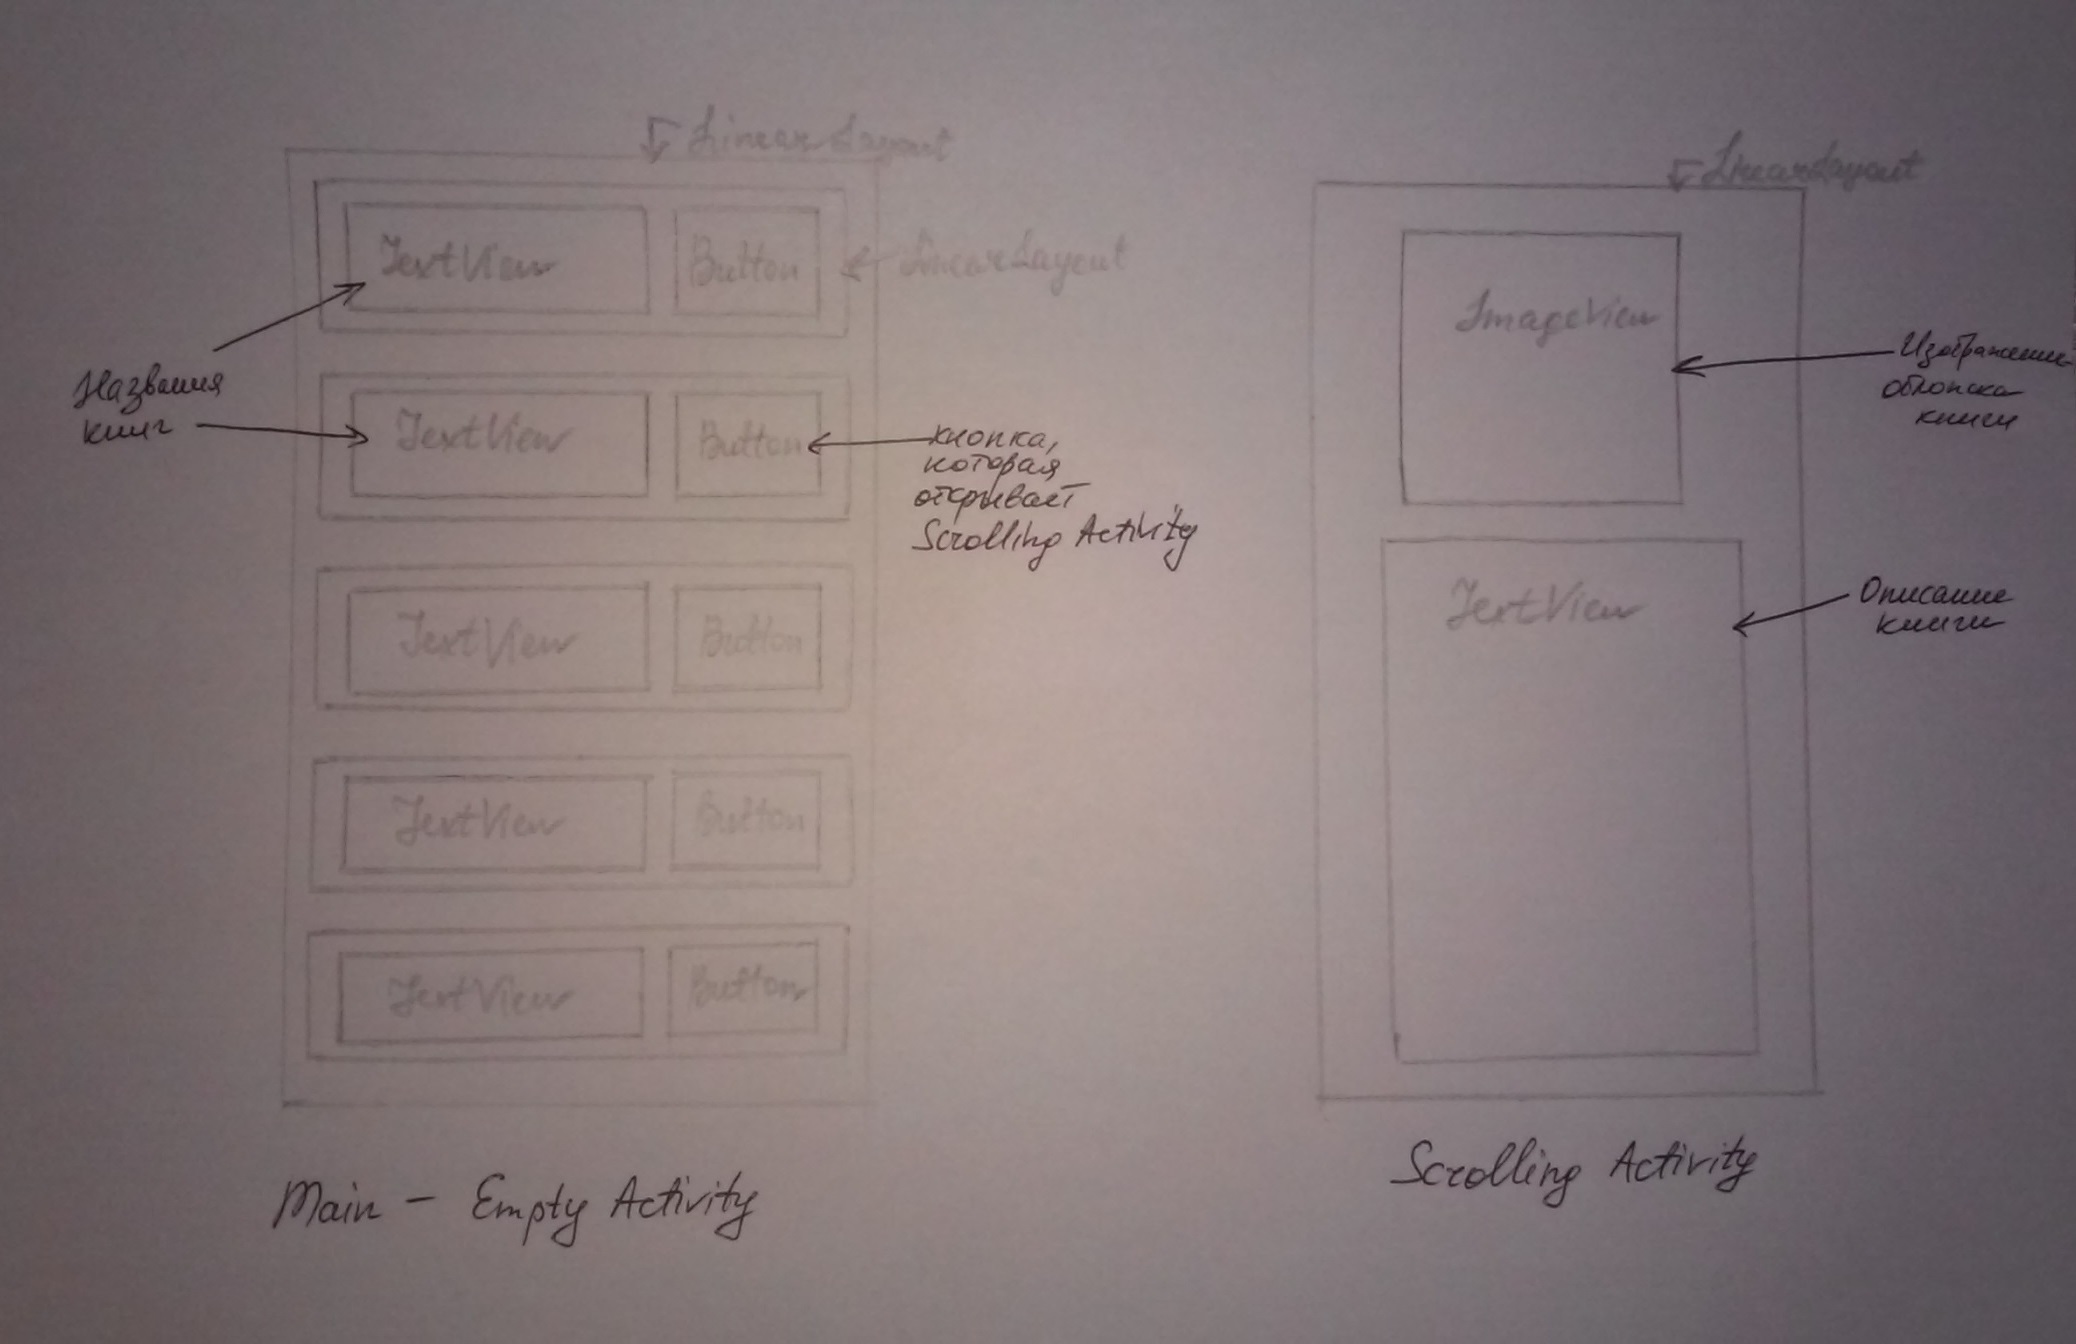 LinearLayout
TextView
Button
LinearLayout
Названия
книг
TextView
Button
кнопка,
которая
открывает
Scrolling Activity
TextView
Button
TextView
Button
TextView
Button
Main - Empty Activity
LinearLayout
ImageView
Изображение
обложка
книги
TextView
Описание
книги
Scrolling Activity